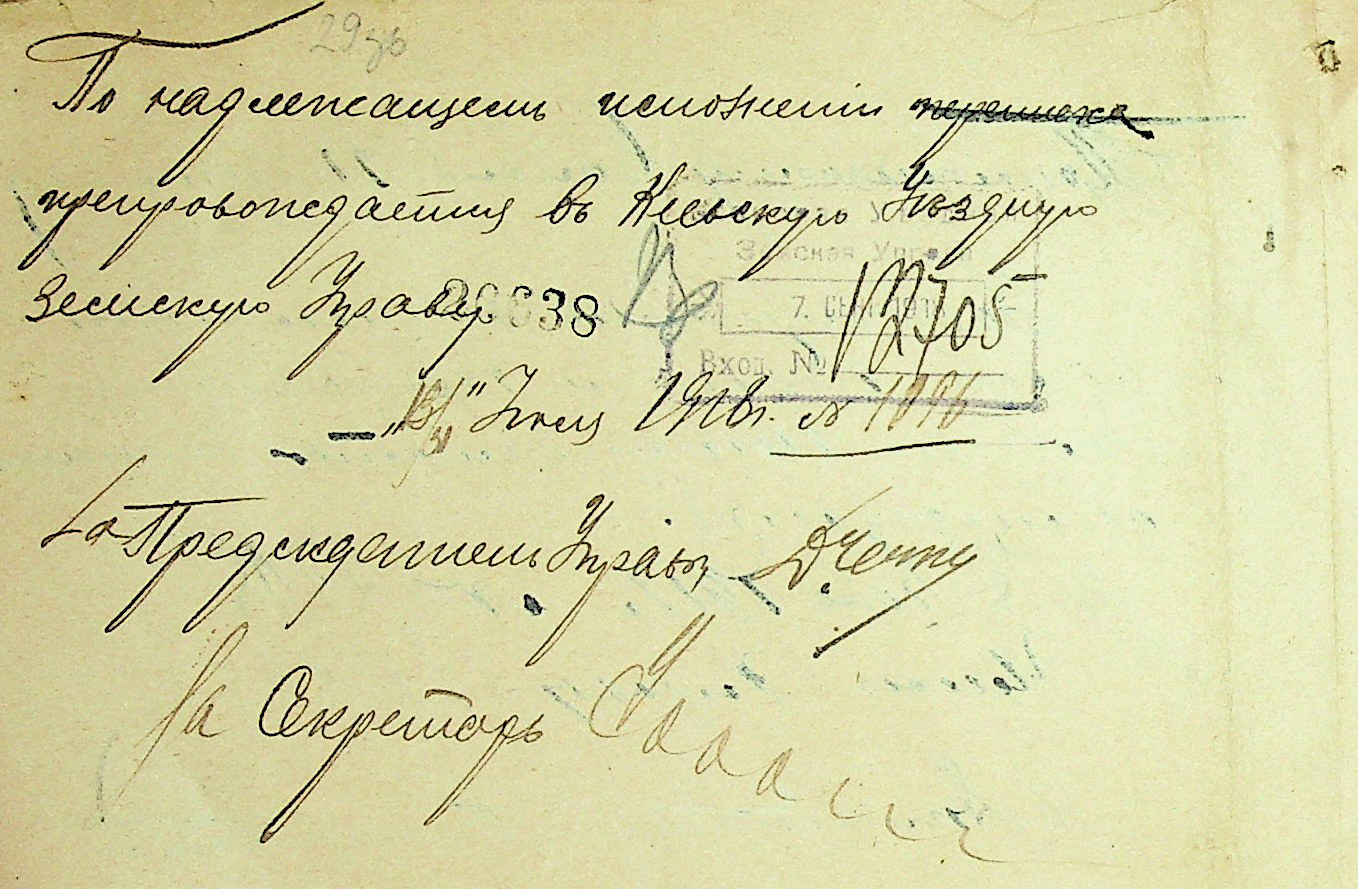 29
По надлежащемъ исполненіи переписка
препровождается въ Кіевскую Уѣздную
Земскую Управу.
38
Земская Управа
7. 1918
12705
Вход. №
Іюля 1918 г. № 1096
За Предсѣдателя Управы
За Секретарь